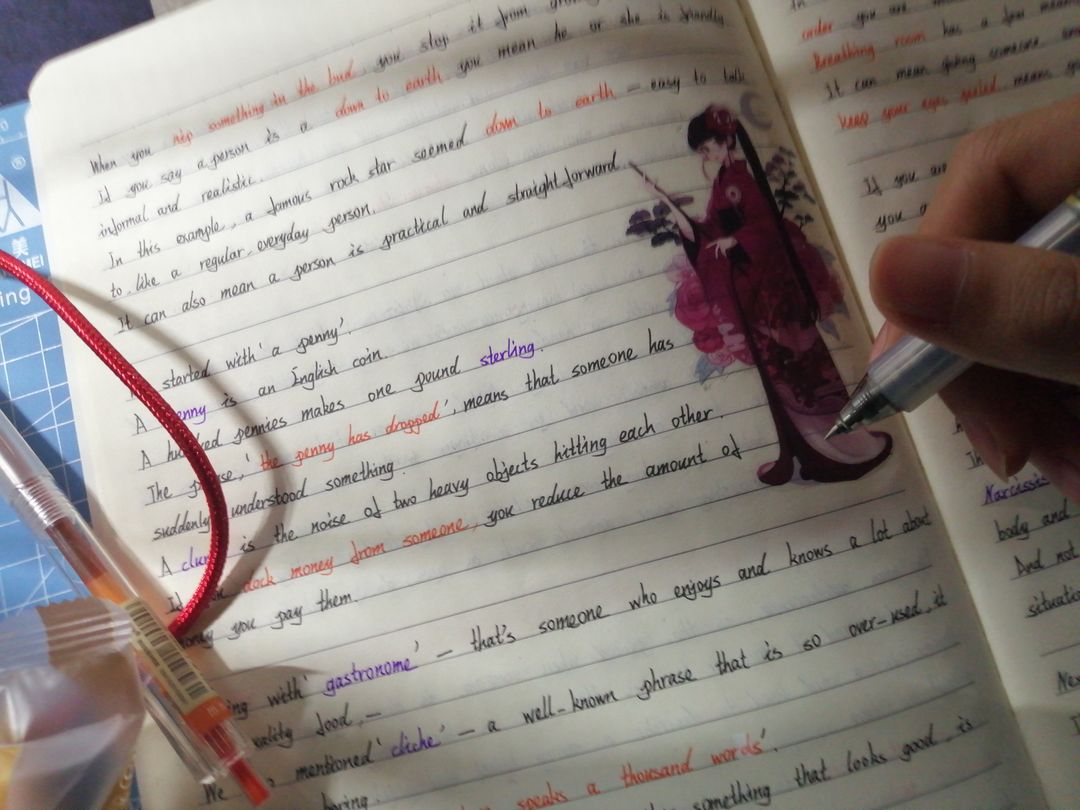 When you nip something in the bud, you stop it from
if you say a person is a down to earth you mean he or she is friendly
informal and realistic.
In this example, a famous rock star seemed down to earth – easy to talk
to, like a regular, everyday person.
It can also mean a person is practical and straightforward
started with 'a penny'.
A penny is an English coin.
A hundred pennies makes one pound sterling.
The phrase, 'the penny has dropped', means that someone has
suddenly understood something.
A clunk is the noise of two heavy objects hitting each other.
If you dock money from someone, you reduce the amount of
money you pay them.
with 'gastronome' – that's someone who enjoys and knows a lot about
quality food, –
We mentioned 'cliche' – a well-known phrase that is so over-used, it
boring.
speaks a thousand words'.
something that looks good is
order you are
Breathing room has a few
It can mean giving someone
keep your eyes peeled, means
If you are
you
Narcissis
body and
And not
situation
Nex
美
ing